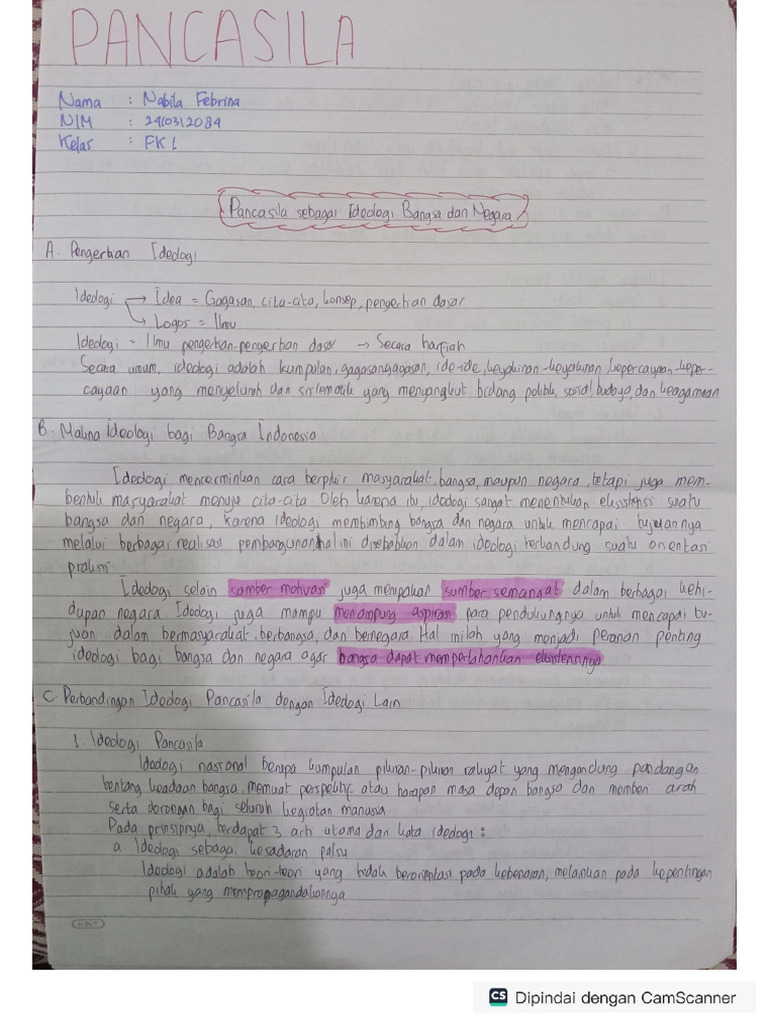 PANCASILA
Nama : Nabila Febrina
NIM : 2410312084
Kelas : FK 1
Pancasila sebagai Ideologi Bangsa dan Negara
A. Pengertian Ideologi
Ideologi → Idea = Gagasan, cita-cita, konsep, pengertian dasar
↳ Logos = Ilmu
Ideologi = Ilmu pengertian-pengertian dasar → Secara harfiah
Secara umum, ideologi adalah kumpulan, gagasangagasan, ide-ide, keyakinan-keyakinan, kepercayaan-keper-
cayaan yang menyeluruh dan sistematik yang menyangkut bidang politik, sosial, budaya, dan keagamaan
B. Makna ideologi bagi Bangsa Indonesia
Ideologi mencerminkan cara berpikir masyarakat, bangsa, maupun negara, tetapi juga mem-
bentuk masyarakat menuju cita-cita. Oleh karena itu, ideologi sangat menentukan eksistensi suatu
bangsa dan negara, karena ideologi membimbing bangsa dan negara untuk mencapai tujuannya
melalui berbagai realisasi pembangunan, hal ini disebabkan dalam ideologi terkandung suatu orientasi
praksis.
Ideologi selain sumber motivasi juga merupakan sumber semangat dalam berbagai kehi-
dupan negara Ideologi juga mampu menampung aspirasi para pendukungnya untuk mencapai tu-
juan dalam bermasyarakat, berbangsa, dan bernegara Hal inilah yang menjadi peranan penting
ideologi bagi bangsa dan negara agar bangsa dapat mempertahankan eksistensinya
C. Perbandingan Ideologi Pancasila dengan Ideologi Lain
1. Ideologi Pancasila
Ideologi nasional berupa kumpulan pikiran-pikiran rakyat yang mengandung pandangan
tentang keadaan bangsa, memuat perspektif atau harapan masa depan bangsa dan memberi arah
serta dorongan bagi seluruh kegiatan manusia
Pada prinsipnya, terdapat 3 arti utama dari kata ideologi :
a Ideologi sebagai kesadaran palsu
Ideologi adalah teori-teori yang tidak berorientasi pada kebenaran, melainkan pada kepentingan
pihak yang mempropagandakannya
CS Dipindai dengan CamScanner